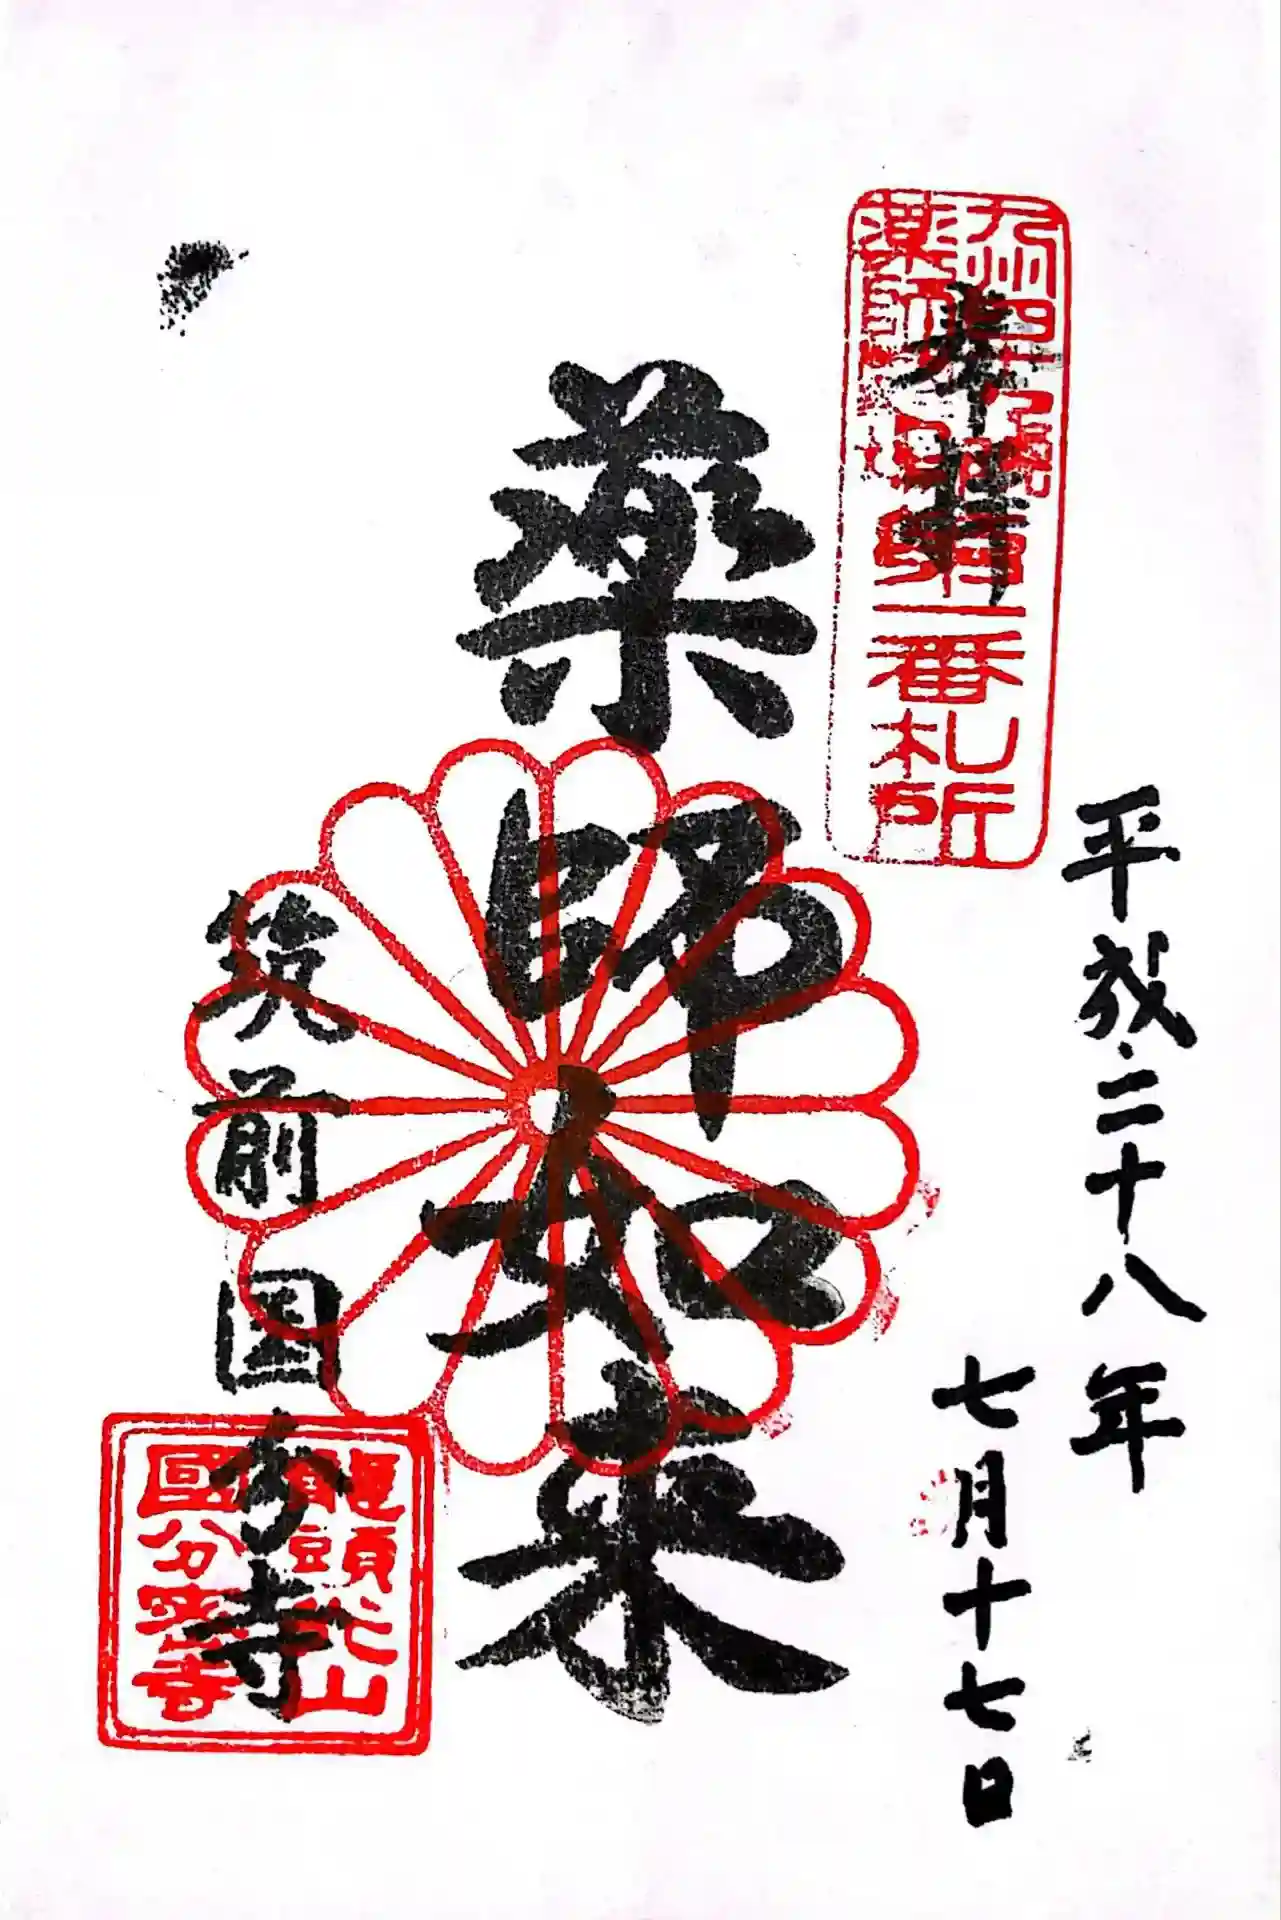 平成二十八年
七月十七日
九州四十九院
薬師霊場第一番札所
奉拝
薬師如来
筑前国分寺
龍頭光山
國分密寺